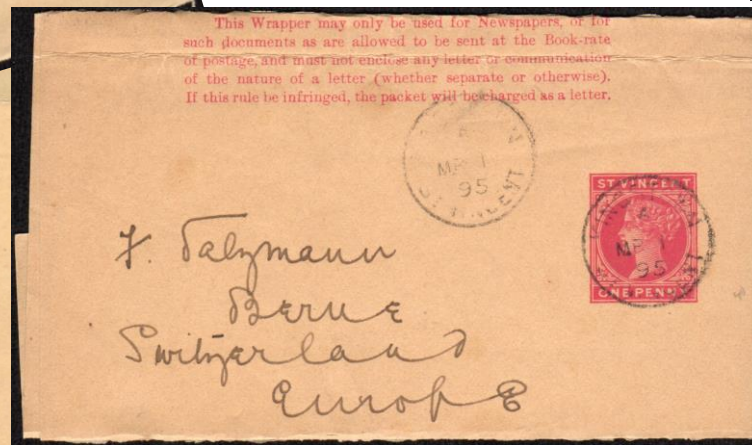 This Wrapper may only be used for Newspapers, or for
such documents as are allowed to be sent at the Book-rate
of postage, and must not enclose any letter or communication
of the nature of a letter (whether separate or otherwise).
If this rule be infringed, the packet will be charged as a letter.
A
MR 1
95
ST VINCENT
ST VINCENT
A
MR 1
95
ONE PENNY
Berne
Switzerland
Europe